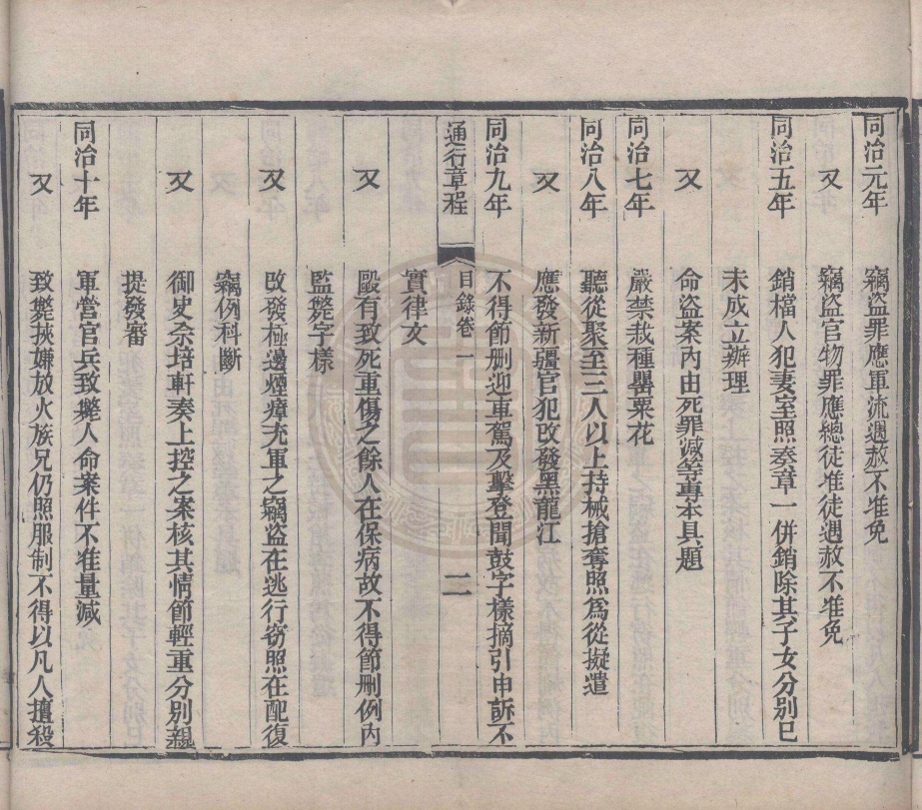 同治元年　竊盜罪應軍流遇赦不准免
又　竊盜官物罪應總徒准徒遇赦不准免
同治五年　銷檔人犯妻室照奏章一併銷除其子女分別已
未成立辦理
又　命盜案內由死罪減等專本具題
同治七年　嚴禁栽種罌粟花
同治八年　聽從聚至三人以上持械搶奪照為從擬遣
又　應發新疆官犯改發黑龍江
同治九年　不得節刪迎車駕及擊登聞鼓字樣摘引申訴不
通行章程　目錄卷一　二
實律文
又　毆有致死重傷之餘人在保病故不得節刪例內
監斃字樣
又　改發極邊煙瘴充軍之竊盜在逃行窃照在配復
竊例科斷
又　御史佘培軒奏上控之案核其情節輕重分別親
提發審
同治十年　軍營官兵致斃人命案件不准量減
又　致斃挾嫌放火族兄仍照服制不得以凡人擅殺